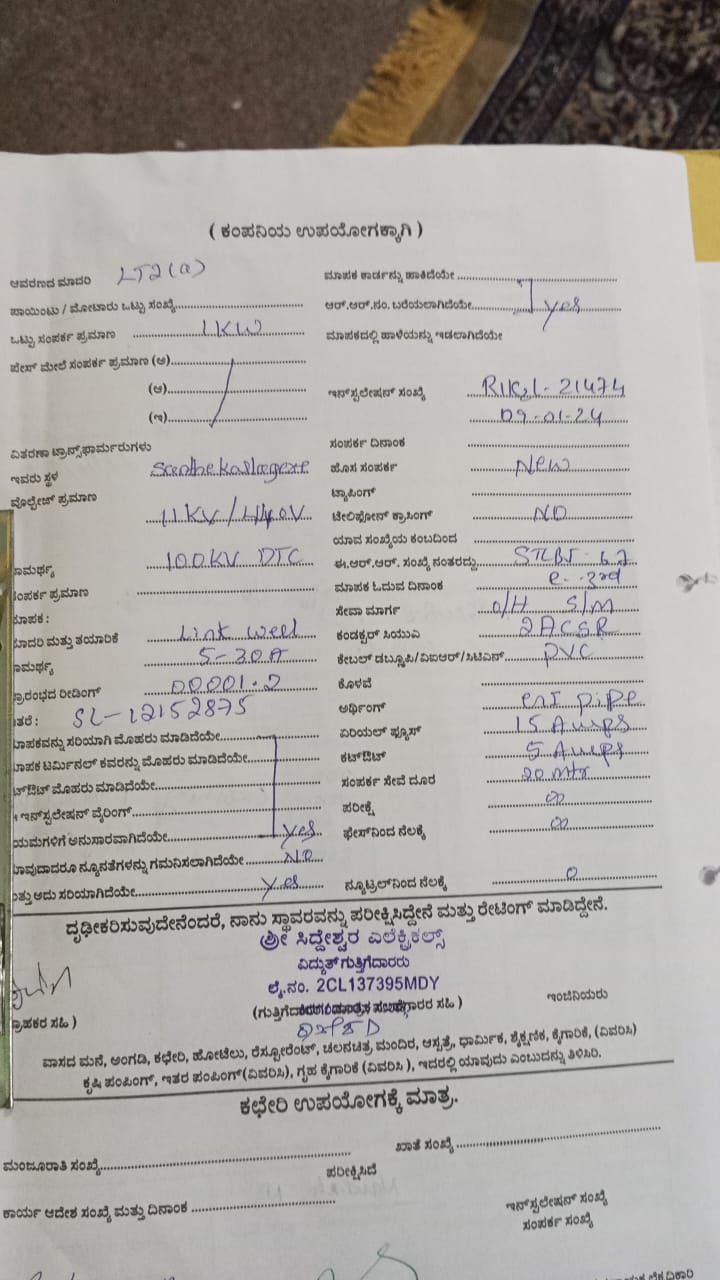 ( ಕಂಪನಿಯ ಉಪಯೋಗಕ್ಕಾಗಿ )
ಆವರಣದ ಮಾದರಿ LT2(a)
ಪಾಯಿಂಟು / ಮೋಟಾರು ಒಟ್ಟು ಸಂಖ್ಯೆ
ಒಟ್ಟು ಸಂಪರ್ಕ ಪ್ರಮಾಣ 1KW
ಫೇಸ್ ಮೇಲೆ ಸಂಪರ್ಕ ಪ್ರಮಾಣ (ಅ)
(ಆ)
(ಇ)
ವಿತರಣಾ ಟ್ರಾನ್ಸ್‌ಫಾರ್ಮರುಗಳು
ಇವರು ಸ್ಥಳ
ವೋಲ್ಟೇಜ್ ಪ್ರಮಾಣ
11KV/440V
ಾಮರ್ಥ್ಯ 100KV DTC
ಸಂಪರ್ಕ ಪ್ರಮಾಣ
ಮಾಪಕ :
ಮಾದರಿ ಮತ್ತು ತಯಾರಿಕೆ Link well
ಾಮರ್ಥ್ಯ 5-30A
ಪ್ರಾರಂಭದ ರೀಡಿಂಗ್ 00001.2
ಇತರೆ : SL-12152875
ಮಾಪಕವನ್ನು ಸರಿಯಾಗಿ ಮೊಹರು ಮಾಡಿದೆಯೇ
ಮಾಪಕ ಟರ್ಮಿನಲ್ ಕವರನ್ನು ಮೊಹರು ಮಾಡಿದೆಯೇ
ಟ್‌ಔಟ್ ಮೊಹರು ಮಾಡಿದೆಯೇ
ಇನ್‌ಸ್ಟಲೇಷನ್ ವೈರಿಂಗ್
ಯಮಗಳಿಗೆ ಅನುಸಾರವಾಗಿದೆಯೇ yes
ಾವುದಾದರೂ ನ್ಯೂನತೆಗಳನ್ನು ಗಮನಿಸಲಾಗಿದೆಯೇ NO
ತ್ತು ಅದು ಸರಿಯಾಗಿದೆಯೇ yes
ಮಾಪಕ ಕಾರ್ಡನ್ನು ಹಾಕಿದೆಯೇ
ಆರ್.ಆರ್.ನಂ. ಬರೆಯಲಾಗಿದೆಯೇ yes
ಮಾಪಕದಲ್ಲಿ ಹಾಳೆಯನ್ನು ಇಡಲಾಗಿದೆಯೇ
ಇನ್‌ಸ್ಟಲೇಷನ್ ಸಂಖ್ಯೆ 21474
09-01-24
ಸಂಪರ್ಕ ದಿನಾಂಕ
ಹೊಸ ಸಂಪರ್ಕ New
ಟ್ಯಾಪಿಂಗ್
ಟೆಲಿಫೋನ್ ಕ್ರಾಸಿಂಗ್ NO
ಯಾವ ಸಂಖ್ಯೆಯ ಕಂಬದಿಂದ
ಈ.ಆರ್.ಆರ್. ಸಂಖ್ಯೆ ನಂತರದ್ದು
ಮಾಪಕ ಓದುವ ದಿನಾಂಕ
ಸೇವಾ ಮಾರ್ಗ O/H S/M
ಕಂಡಕ್ಟರ್ ಸಿಯುಎ 2ACSR
ಕೇಬಲ್ ಡಬ್ಲ್ಯೂಪಿ/ವಿಐಆರ್/ಸಿಟಿಎಸ್ PVC
ಕೊಳವೆ
ಅರ್ಥಿಂಗ್ pipe
ಏರಿಯಲ್ ಫ್ಯೂಸ್ 15 Amps
ಕಟ್‌ಔಟ್ 5 Amps
ಸಂಪರ್ಕ ಸೇವೆ ದೂರ 20 Mtr
ಪರೀಕ್ಷೆ ∞
ಫೇಸ್‌ನಿಂದ ನೆಲಕ್ಕೆ ∞
ನ್ಯೂಟ್ರಲ್‌ನಿಂದ ನೆಲಕ್ಕೆ 0
ದೃಢೀಕರಿಸುವುದೇನೆಂದರೆ, ನಾನು ಸ್ಥಾವರವನ್ನು ಪರೀಕ್ಷಿಸಿದ್ದೇನೆ ಮತ್ತು ರೇಟಿಂಗ್ ಮಾಡಿದ್ದೇನೆ.
ಶ್ರೀ ಸಿದ್ದೇಶ್ವರ ಎಲೆಕ್ಟ್ರಿಕಲ್ಸ್
ವಿದ್ಯುತ್ ಗುತ್ತಿಗೆದಾರರು
ಲೈ.ನಂ. 2CL137395MDY
ಗ್ರಾಹಕರ ಸಹಿ )
ಇಂಜಿನಿಯರು
ವಾಸದ ಮನೆ, ಅಂಗಡಿ, ಕಛೇರಿ, ಹೋಟೆಲು, ರೆಸ್ಟೋರೆಂಟ್, ಚಲನಚಿತ್ರ ಮಂದಿರ, ಆಸ್ಪತ್ರೆ, ಧಾರ್ಮಿಕ, ಶೈಕ್ಷಣಿಕ, ಕೈಗಾರಿಕೆ, (ವಿವರಿಸಿ)
ಕೃಷಿ ಪಂಪಿಂಗ್, ಇತರ ಪಂಪಿಂಗ್(ವಿವರಿಸಿ), ಗೃಹ ಕೈಗಾರಿಕೆ (ವಿವರಿಸಿ ), ಇದರಲ್ಲಿ ಯಾವುದು ಎಂಬುದನ್ನು ತಿಳಿಸಿರಿ.
ಕಛೇರಿ ಉಪಯೋಗಕ್ಕೆ ಮಾತ್ರ.
ಮಂಜೂರಾತಿ ಸಂಖ್ಯೆ
ಖಾತೆ ಸಂಖ್ಯೆ
ಪರೀಕ್ಷಿಸಿದೆ
ಕಾರ್ಯ ಆದೇಶ ಸಂಖ್ಯೆ ಮತ್ತು ದಿನಾಂಕ
ಇನ್‌ಸ್ಟಲೇಷನ್ ಸಂಖ್ಯೆ
ಸಂಪರ್ಕ ಸಂಖ್ಯೆ